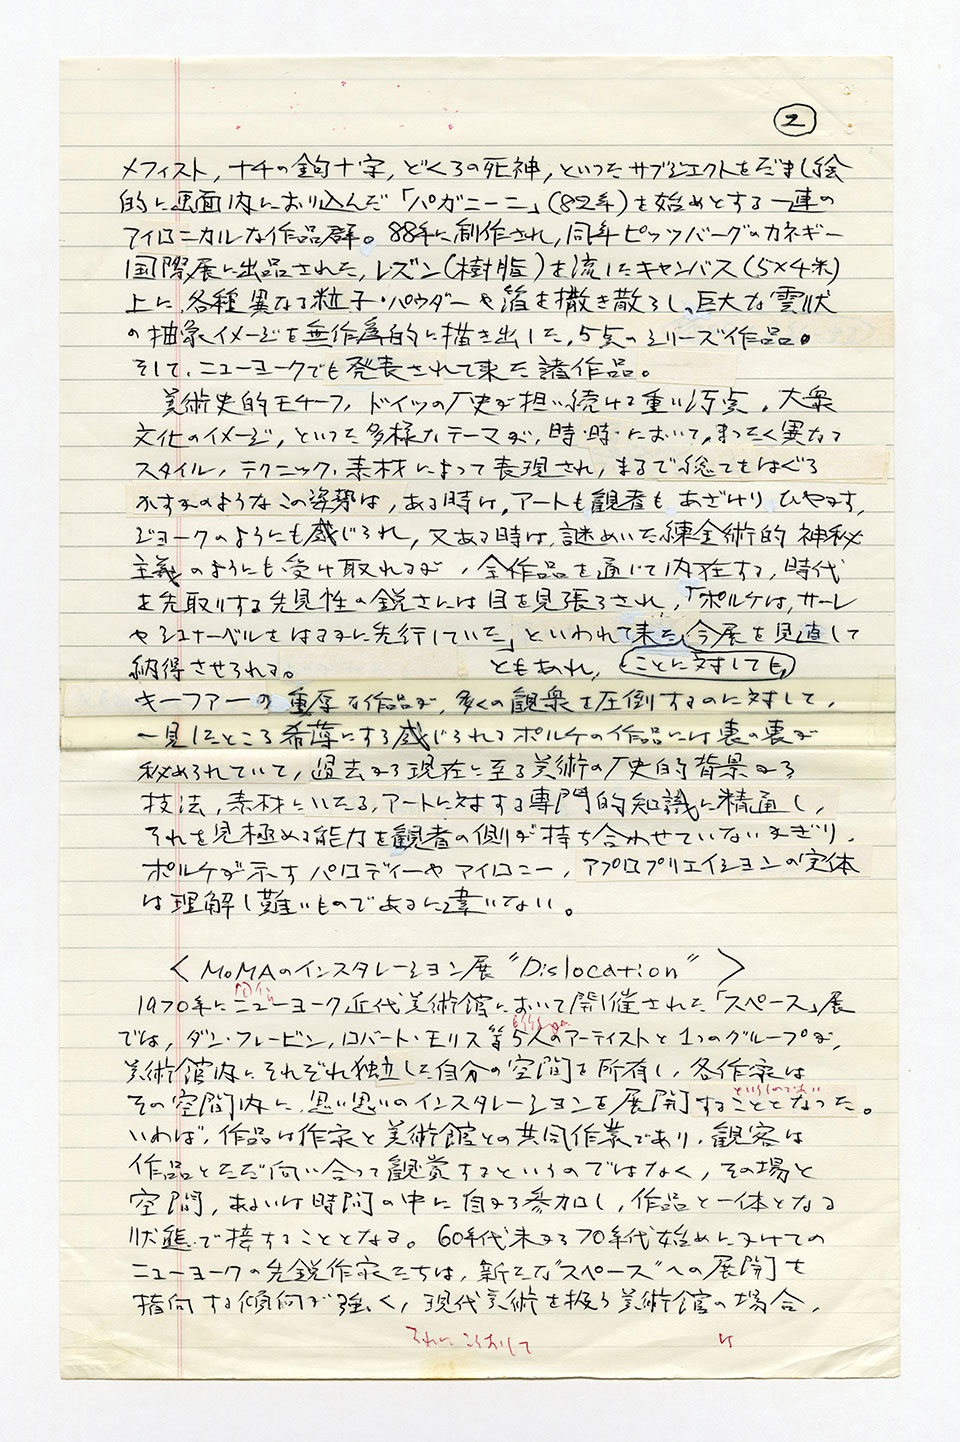 2
メフィスト，ナチの鉤十字，どくろの死神，といったサブジェクトをだまし絵
的に画面内におり込んだ「パガニーニ」（82年）を始めとする一連の
アイロニカルな作品群。88年に創作され，同年ピッツバーグのカネギー
国際展に出品された，レズン（樹脂）を流したキャンバス（5×4米）
上に，各種異なる粒子・パウダーや箔を撒き散らし，巨大な雲状
の抽象イメージを無作為的に描き出した，5点のシリーズ作品。
そして，ニューヨークでも発表されて来た諸作品。
美術史的モチーフ，ドイツの歴史が担い続ける重い汚点，大衆
文化のイメージ，といった多様なテーマが，時・時・において，まったく異なる
スタイル，テクニック，素材によって表現され，まるで総てをはぐら
かすかのようなこの姿勢は，ある時は，アートも観者も あざけり ひやかす，
ジョークのようにも感じられ，又ある時は，謎めいた錬金術的 神秘
主義のようにも受け取れるが，全作品を通じて内在する，時代
を先取りする先見性の鋭さには目を見張らされ，「ポルケは，サーレ
やシュナーベルをはるかに先行していた」といわれて来た ことに対しても，今展を見直して
納得させられる。 ともあれ，
キーファーの重厚な作品が，多くの観衆を圧倒するのに対して，
一見したところ希薄にすら感じられるポルケの作品には裏の裏が
秘められていて，過去から現在に至る美術の歴史的背景から
技法，素材にいたる，アートに対する専門的知識に精通し，
それを見極める能力を観者の側が持ち合わせていないかぎり，
ポルケが示すパロディーやアイロニー，アプロプリエイションの実体
は理解し難いものであるに違いない。
〈MoMAのインスタレーション展 “Dislocation”〉
1970年にニューヨーク近代美術館において開催された「スペース」展
では，ダン・フレービン，ロバート・モリス等5人のアーティストと1つのグループが，
美術館内にそれぞれ独立した自分の空間を所有し，各作家は
というものであい
その空間内に，思い思いのインスタレーションを展開することとなった。
いわば，作品は作家と美術館との共同作業であり，観客は
作品とただ向い合って観賞するというのではなく，その場と
空間，あるいは時間の中に自から参加し，作品と一体となる
状態で接することとなる。60年代末から70年代始めにかけての
ニューヨークの先鋭作家たちは，新たな“スペース”への展開を
指向する傾向が強く，現代美術を扱う美術館の場合，
それにこたおして
は